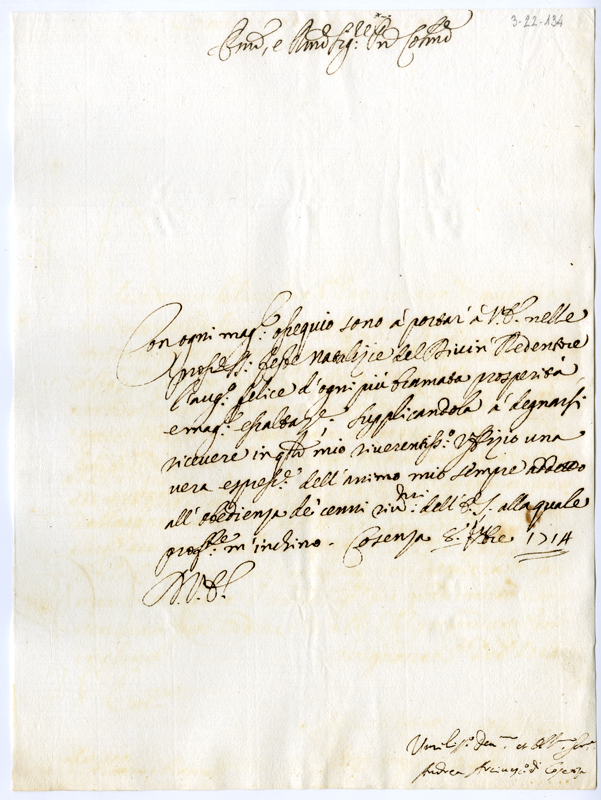 3-22-134
Em.o, e Rmo Sig.re Prn Colmo
Con ogni mag.r ossequio sono à portar à V.E. nelle
pross.e feste natalizie del Divin Redentore
l'aug.o felice d'ogni più bramata prosperità
e mag.r esaltaz.e. Supplicandola à degnarsi
ricevere in qto mio riverentiss.o uffizio una
vera espress.e dell'animo mio sempre addetto
all'obedienza dei cenni riv.mi dell'E.S. alla quale
prof.te m'inchino. Cosenza 8.bre 1714
D.V.E.
Umiliss.o Dev.mo et Obb.mo Serv.
Andrea Arcivesc.o di Cosenza